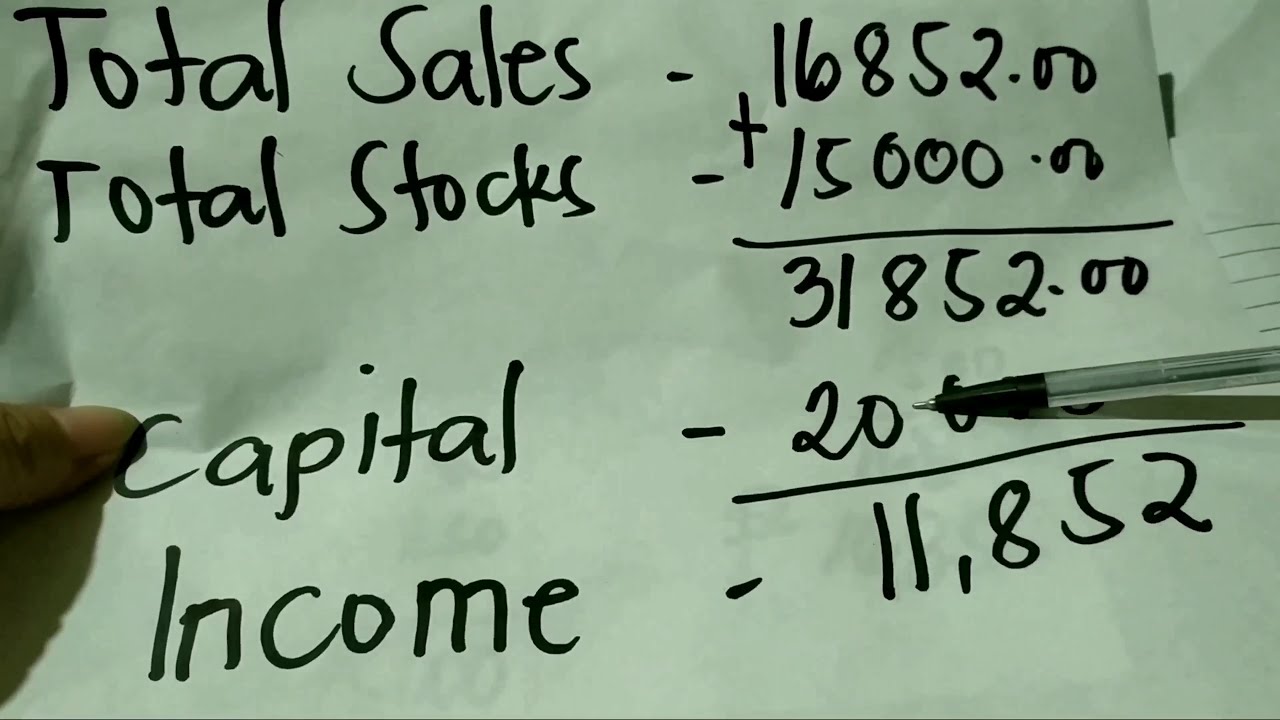 Total Sales - 16852.00
Total Stocks - + 15000.00
31852.00
Capital - 20
Income - 11,852